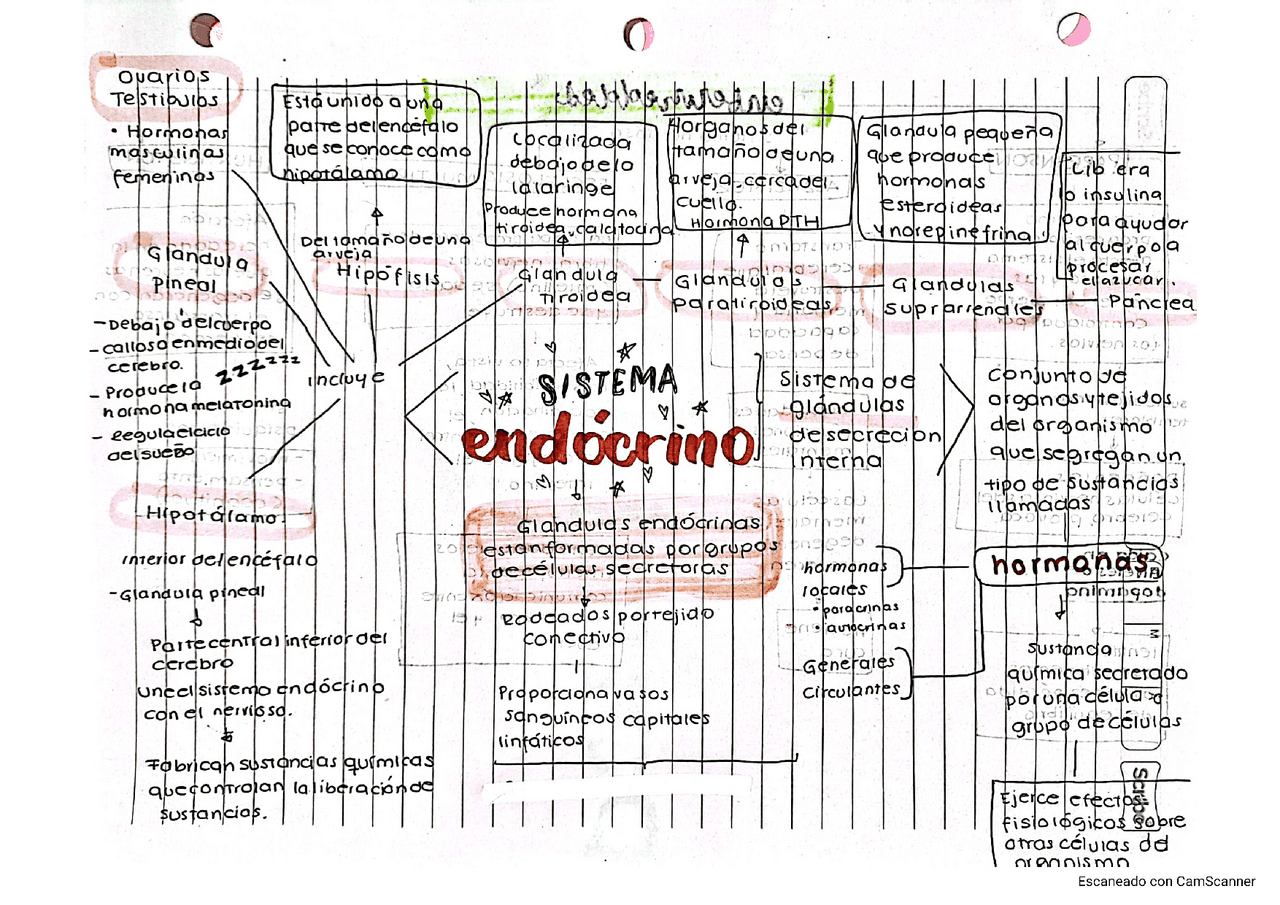 Ovarios
Testiculos
• Hormonas
masculinas
femeninas
Está unido a una
parte del encéfalo
que se conoce como
hipotálamo
Del tamaño de una
arveja
Hipófisis
Localizada
debajo de la
la laringe
Produce hormona
tiroidea, calcitocina
Glandula
tiroidea
4 organos del
tamaño de una
arveja, cerca del
cuello.
Hormona PTH
Glandulas
paratiroideas
Glandula pequeña
que produce
hormonas
esteroideas
y norepinefrina
Glandulas
suprarrenales
Lib era
o insulina
para ayudar
al cuerpo a
procesar
el azucar.
Páncrea
Glandula
pineal
- Debajo del cuerpo
- calloso en medio del
cerebro.
- Produce la zzzzzzz
hormona melatonina
- Regula el ciclo
del sueño
incluye
Hipotálamo
interior del encéfalo
- Glandula pineal
Parte central inferior del
cerebro
une el sistema endócrino
con el nervioso.
Fabrican sustancias químicas
que controlan la liberación de
sustancias.
SISTEMA
endócrino
Sistema de
glándulas
de secreción
interna
Conjunto de
organos y tejidos
del organismo
que segregan un
tipo de sustancias
llamadas
hormonas
Glandulas endócrinas
estan formadas por grupos
de células secretoras
Rodeados por tejido
conectivo
Proporciona vasos
sanguíneos capitales
linfáticos
hormonas
locales
• paracrinas
• autocrinas
Generales
circulantes
sustancia
química secretado
por una célula o
grupo de células
Ejerce efectos
fisiológicos sobre
otras células del
organismo
Scribe
Escaneado con CamScanner